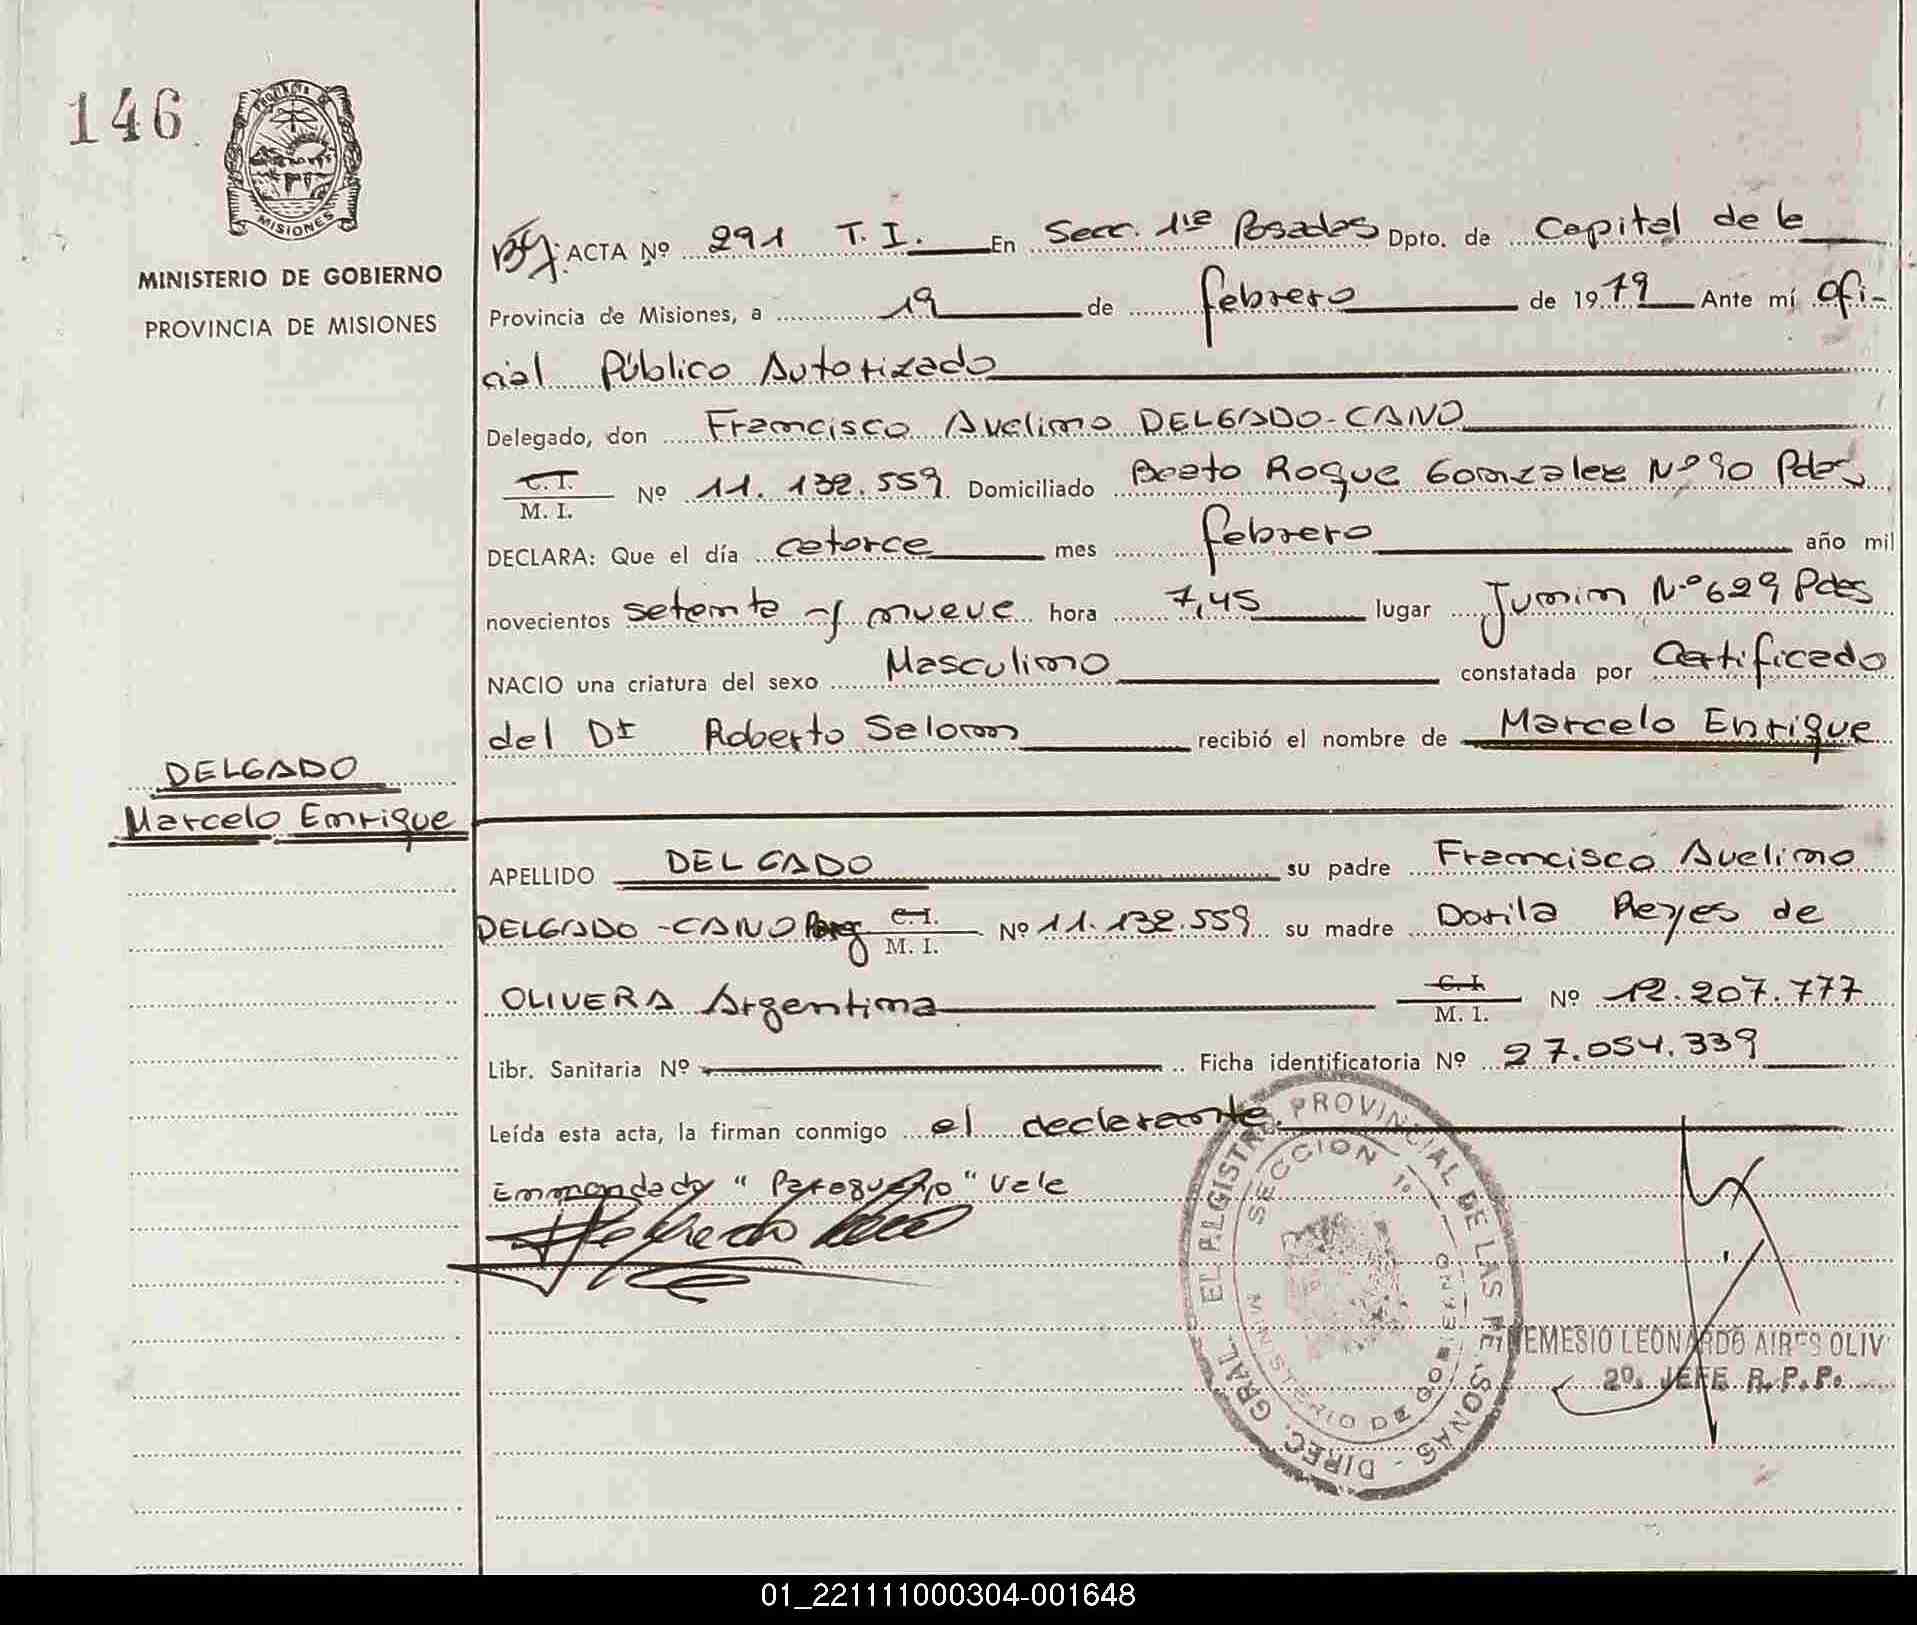 146
Provincia de
MISIONES
MINISTERIO DE GOBIERNO
PROVINCIA DE MISIONES
ACTA Nº 291 T. I. En Secc. 1ra Posadas Dpto. de Capital de la
Provincia de Misiones, a 19 de febrero de 1979 Ante mí Ofi-
cial Público Autorizado
Delegado, don Francisco Avelino DELGADO-CANO
C.I. M. I. Nº 11.132.559 Domiciliado Beato Roque Gonzalez Nº 90 Pdas
DECLARA: Que el día catorce mes febrero año mil
novecientos setenta y nueve hora 7,45 lugar Junin Nº 629 Pdas
NACIO una criatura del sexo Masculino constatada por Certificado
del Dr Roberto Selom recibió el nombre de Marcelo Enrique
DELGADO
Marcelo Enrique
APELLIDO DELGADO su padre Francisco Avelino
DELGADO-CANO C.I. M. I. Nº 11.132.559 su madre Dorila Reyes de
OLIVERA Argentina C.I. M. I. Nº 12.207.777
Libr. Sanitaria Nº Ficha identificatoria Nº 27.054.339
Leída esta acta, la firman conmigo el declarante.
Enmendado "Paraguayo" Vale
DIREC. GRAL. PROVINCIAL DE LAS PERSONAS
SECCION 1º
MINISTERIO DE GOBIERNO
NEMESIO LEONARDO AIRES OLIV
2º. JEFE R. P. P.
01_221111000304-001648